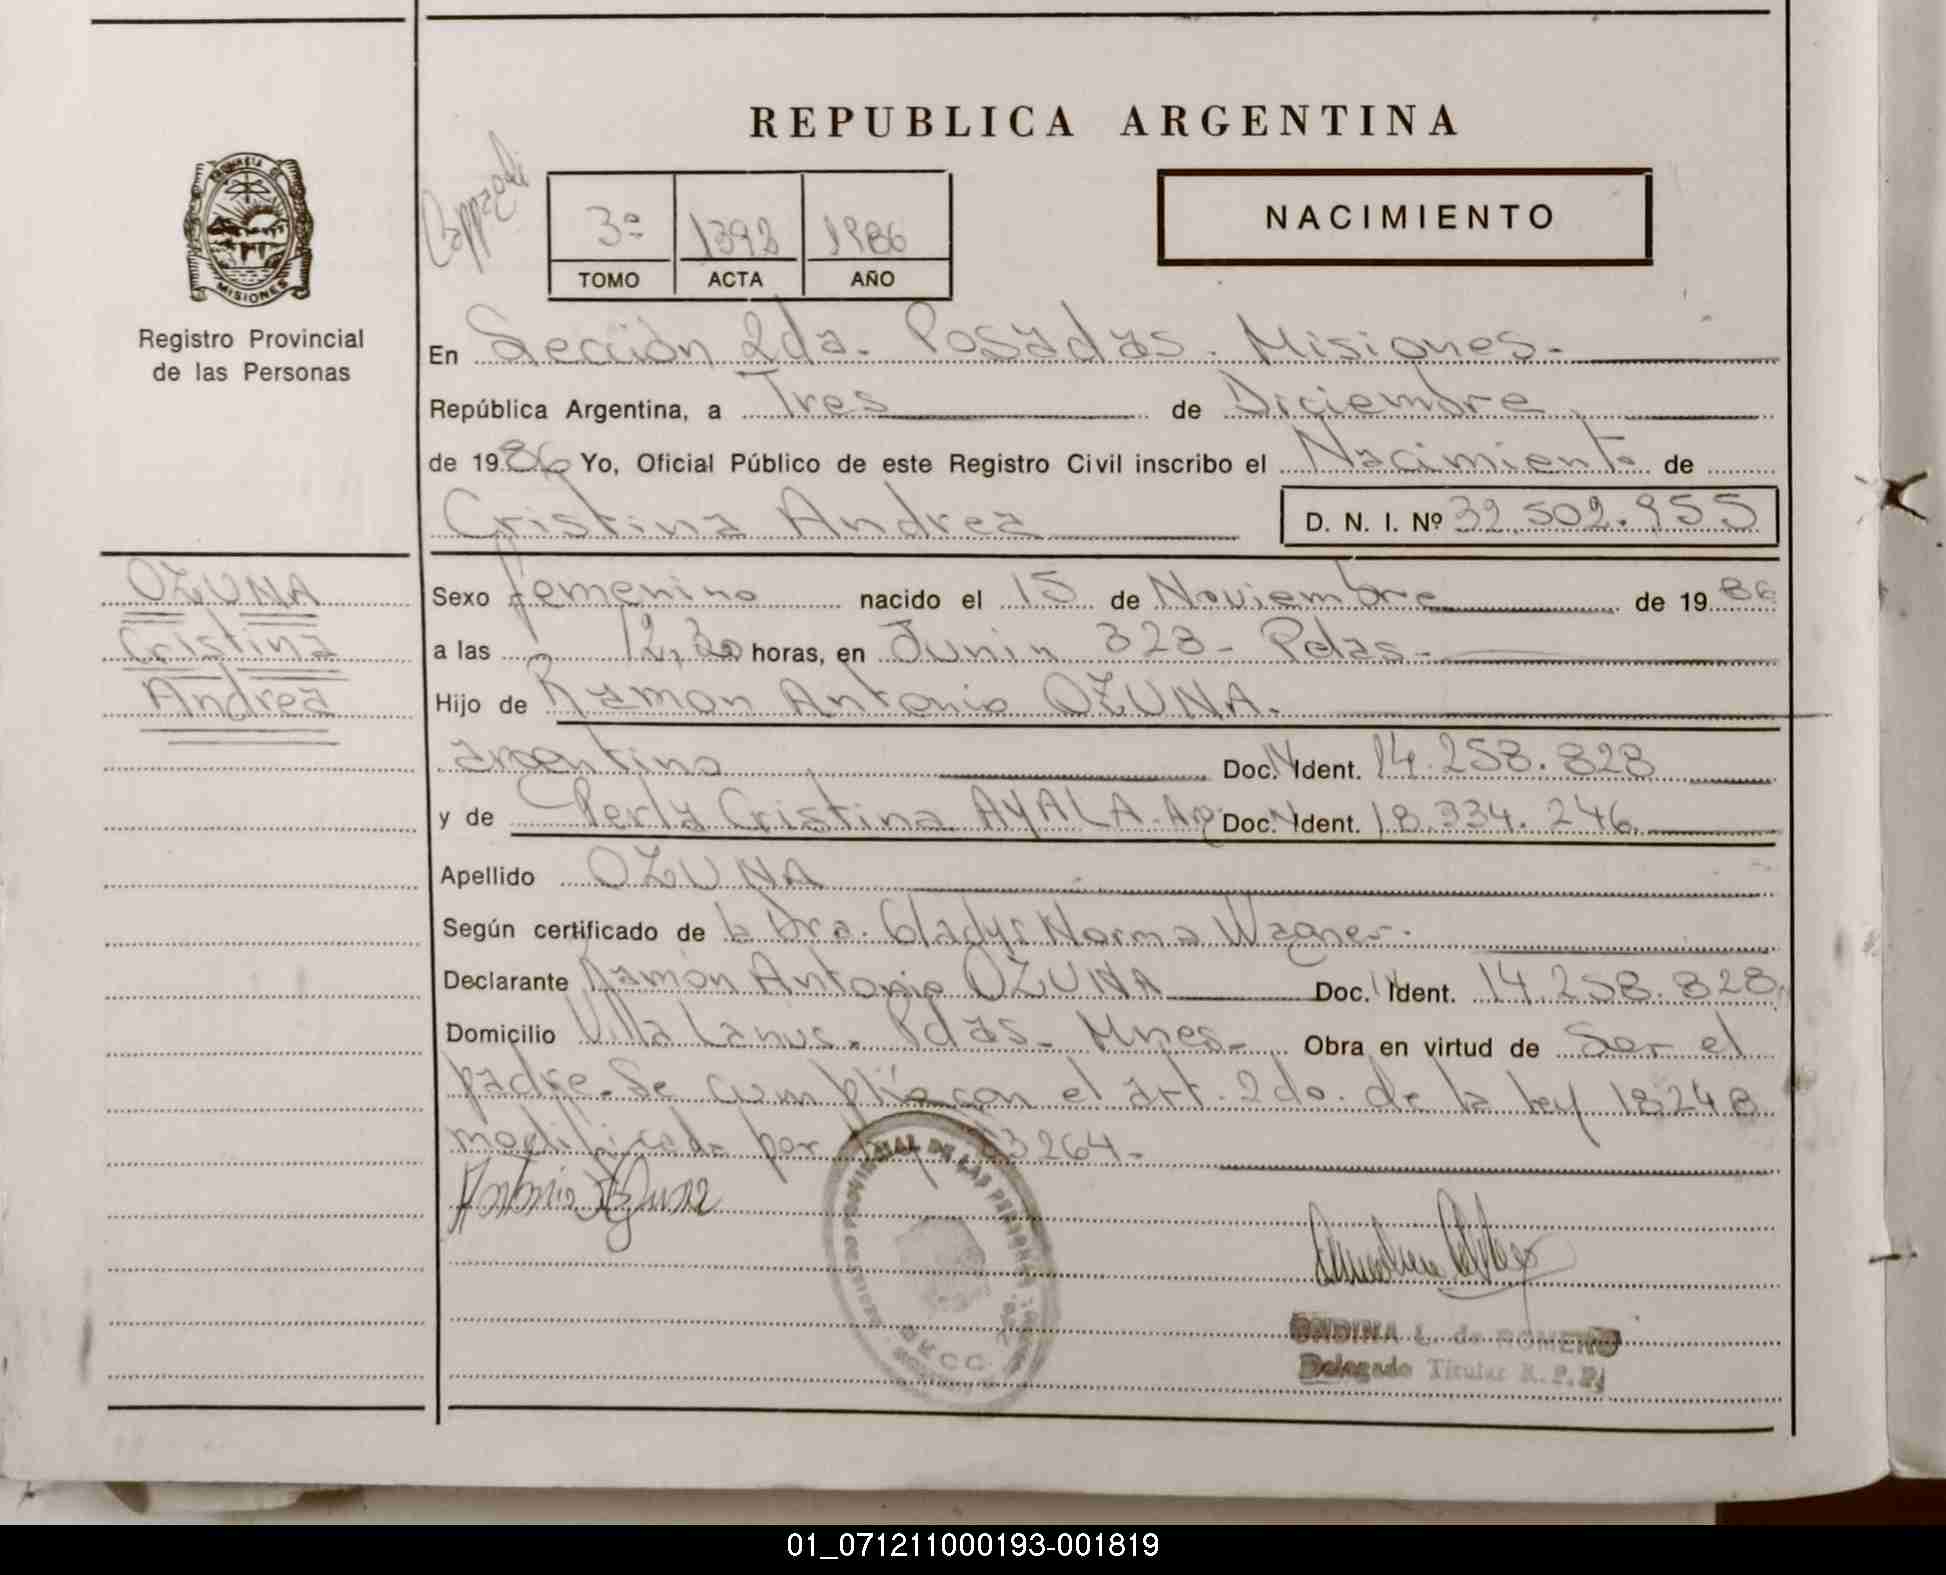 REPUBLICA ARGENTINA
PROVINCIA DE
MISIONES
Registro Provincial
de las Personas
3º 1392 1986
TOMO ACTA AÑO
NACIMIENTO
En Sección 2da. Posadas. Misiones.
República Argentina, a Tres de Diciembre
de 1986 Yo, Oficial Público de este Registro Civil inscribo el Nacimiento de
Cristina Andrea D. N. I. Nº 32.502.955
OZUNA
Cristina
Andrea
Sexo femenino nacido el 15 de Noviembre de 1986
a las 12,30 horas, en Junin 323 - Pdas -
Hijo de Ramon Antonio OZUNA.
argentino Doc. N Ident. 14.258.828
y de Perla Cristina AYALA. Arg Doc. N Ident. 18.334.246
Apellido OZUNA
Según certificado de la Dra. Gladys Norma Wagner.
Declarante Ramón Antonio OZUNA Doc. N Ident. 14.258.828
Domicilio Villa Lanus. Pdas - Mnes - Obra en virtud de Ser el
padre. Se cumplio con el art. 2do. de la ley 18248
modificada por 23264 -
Antonio Ozuna
PROVINCIAL DE LAS PERSONAS
ONDINA L. de ROMERO
Delegado Titular R. P. P.
01_071211000193-001819